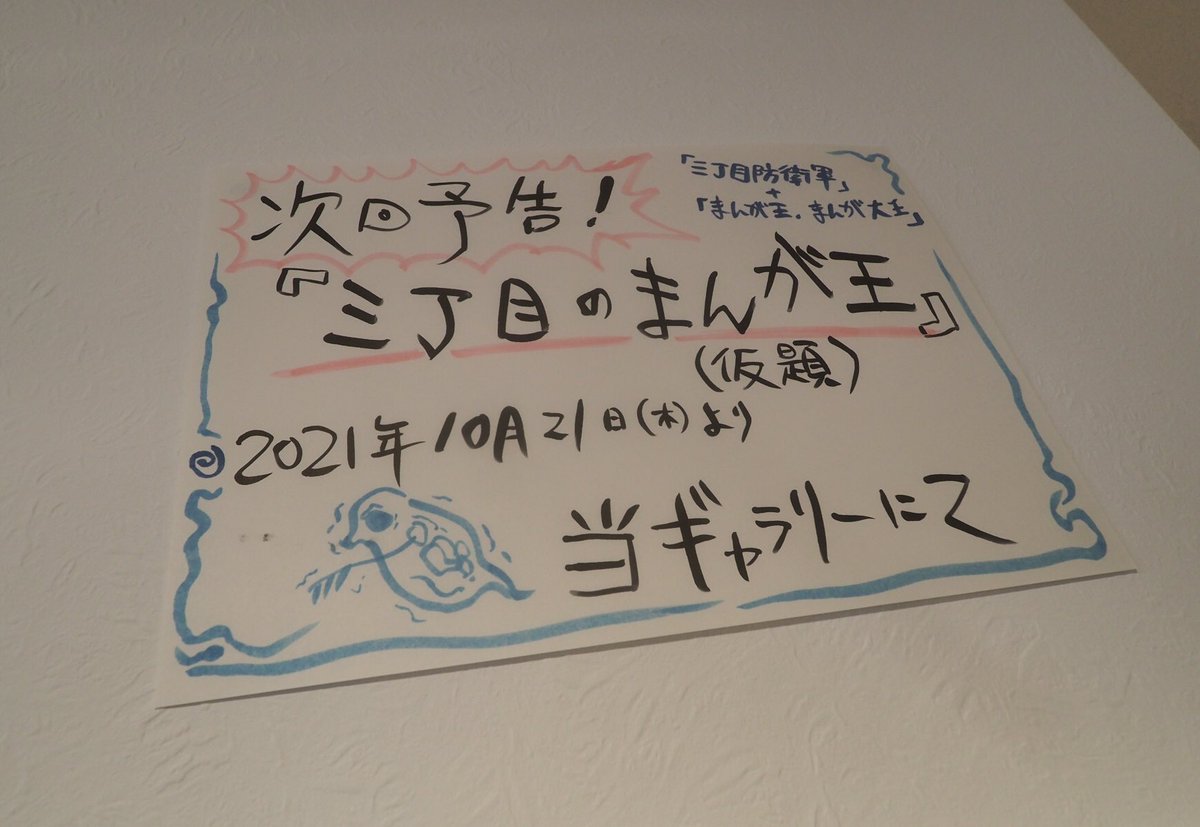 次回予告!
「三丁目防衛軍」
+
「まんが王、まんが大王」
『三丁目のまんが王』
(仮題)
2021年10月21日(木)より
当ギャラリーにて